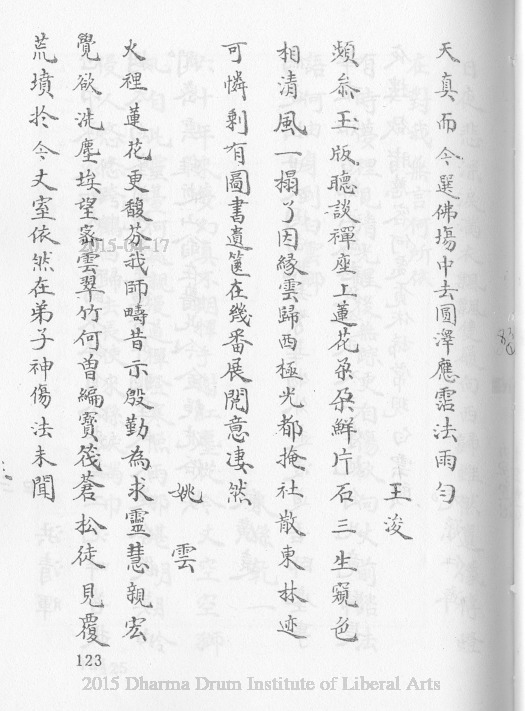 天真而今選佛場中去圓澤應霑法雨勻
王浚
頻叅玉版聽談禪座上蓮花朶朶鮮片石三生窺色
相清風一搨了因緣雲歸西極光都掩社散東林迹
可憐剩有圖書遺篋在幾番展閱意凄然
姚雲
火裡蓮花更馥芬我師疇昔示殷勤為求靈慧親宏
覺欲洗塵埃望密雲翠竹何曽編寳筏蒼松徒見覆
荒墳扵今丈室依然在弟子神傷法未聞
123
2015-04-17
2015 Dharma Drum Institute of Liberal Arts